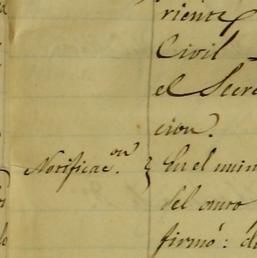 riente
Civil
el Secre
cion.
Notificac.on
En el mism
del
firmó: d